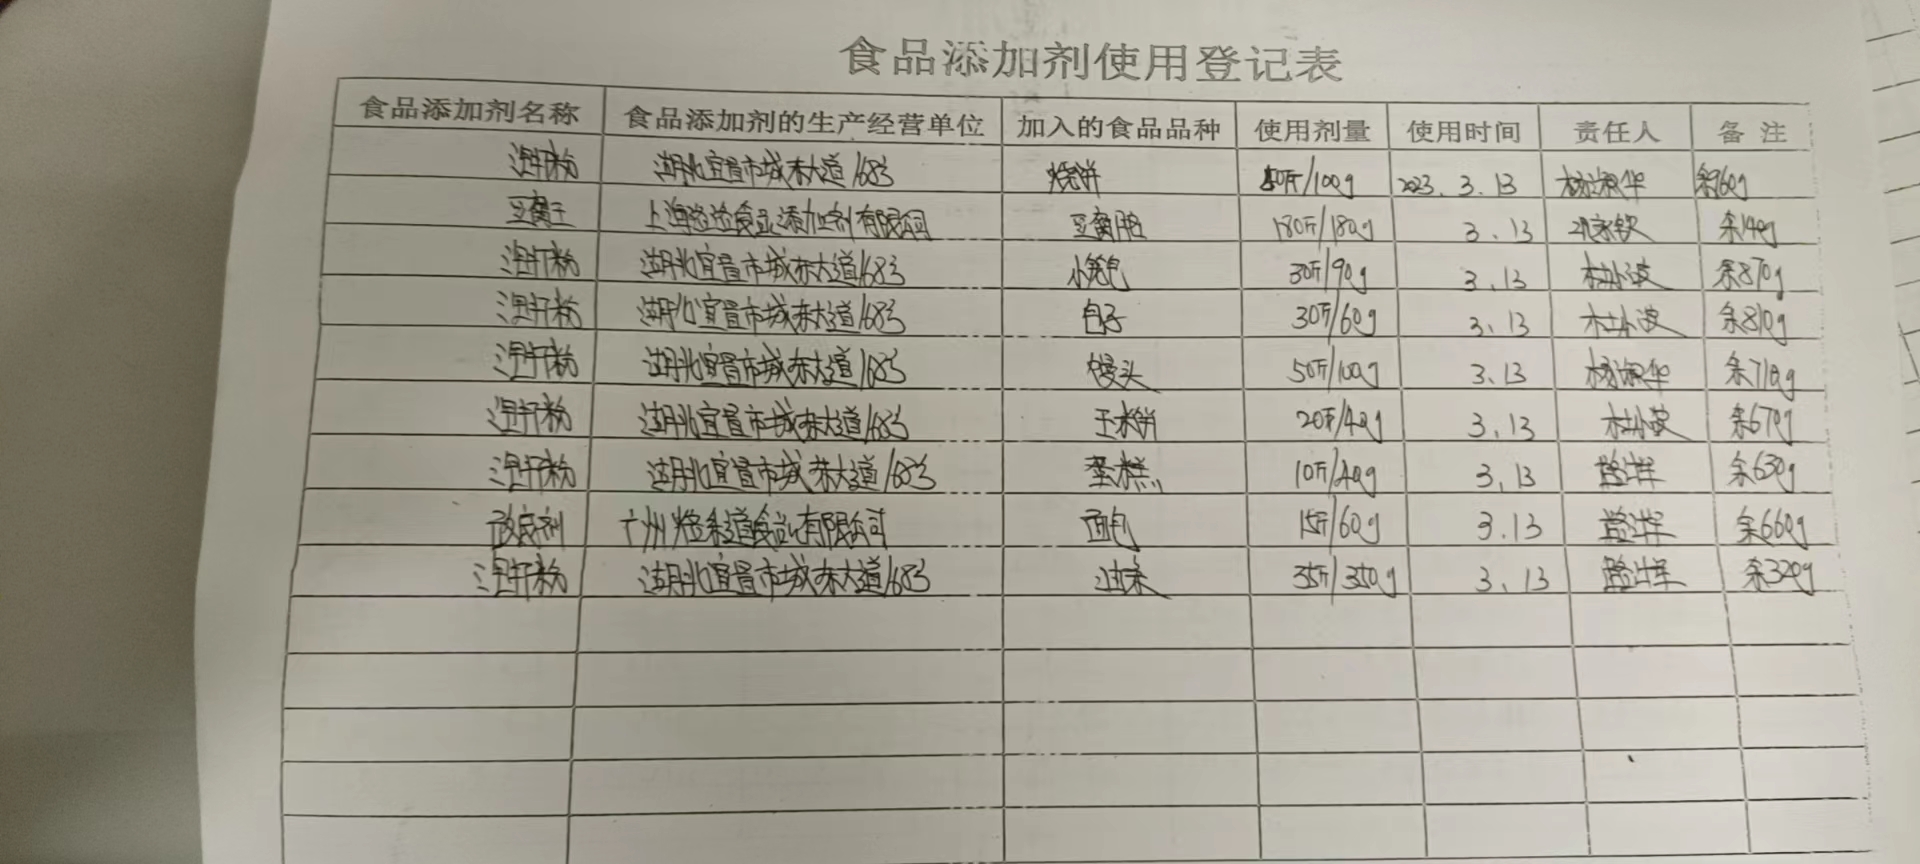 食品添加剂使用登记表
食品添加剂名称 食品添加剂的生产经营单位 加入的食品品种 使用剂量 使用时间 责任人 备 注
泡打粉 湖北宜昌市城东大道168号 烧饼 50斤/100g 2023.3.13 余960g
豆腐王 上海 食品添加剂有限公司 豆腐脑 180斤/180g 3.13 余140g
泡打粉 湖北宜昌市城东大道168号 小笼包 30斤/90g 3.13 杜小波 余870g
泡打粉 湖北宜昌市城东大道168号 包子 30斤/60g 3.13 杜小波 余810g
泡打粉 湖北宜昌市城东大道168号 馒头 50斤/100g 3.13 余710g
泡打粉 湖北宜昌市城东大道168号 玉米饼 20斤/40g 3.13 杜小波 余670g
泡打粉 湖北宜昌市城东大道168号 蛋糕 10斤/40g 3.13 余630g
改良剂 广州 食品有限公司 面包 15斤/60g 3.13 余660g
泡打粉 湖北宜昌市城东大道168号 油条 35斤/350g 3.13 余320g